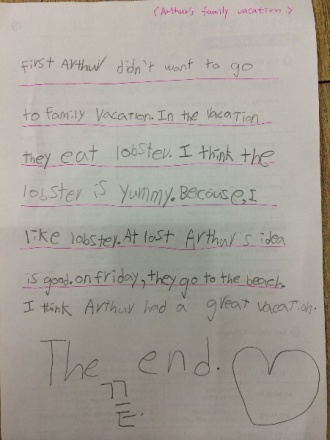 (Arthur's family vacation.)
first Arthur didn't want to go
to family vacation. In the vacation
they eat lobster. I think the
lobster is yummy. Because, I
like lobster. At last Arthur's idea
is good. on friday, they go to the beach.
I think Arthur had a great vacation.
The end.
끝